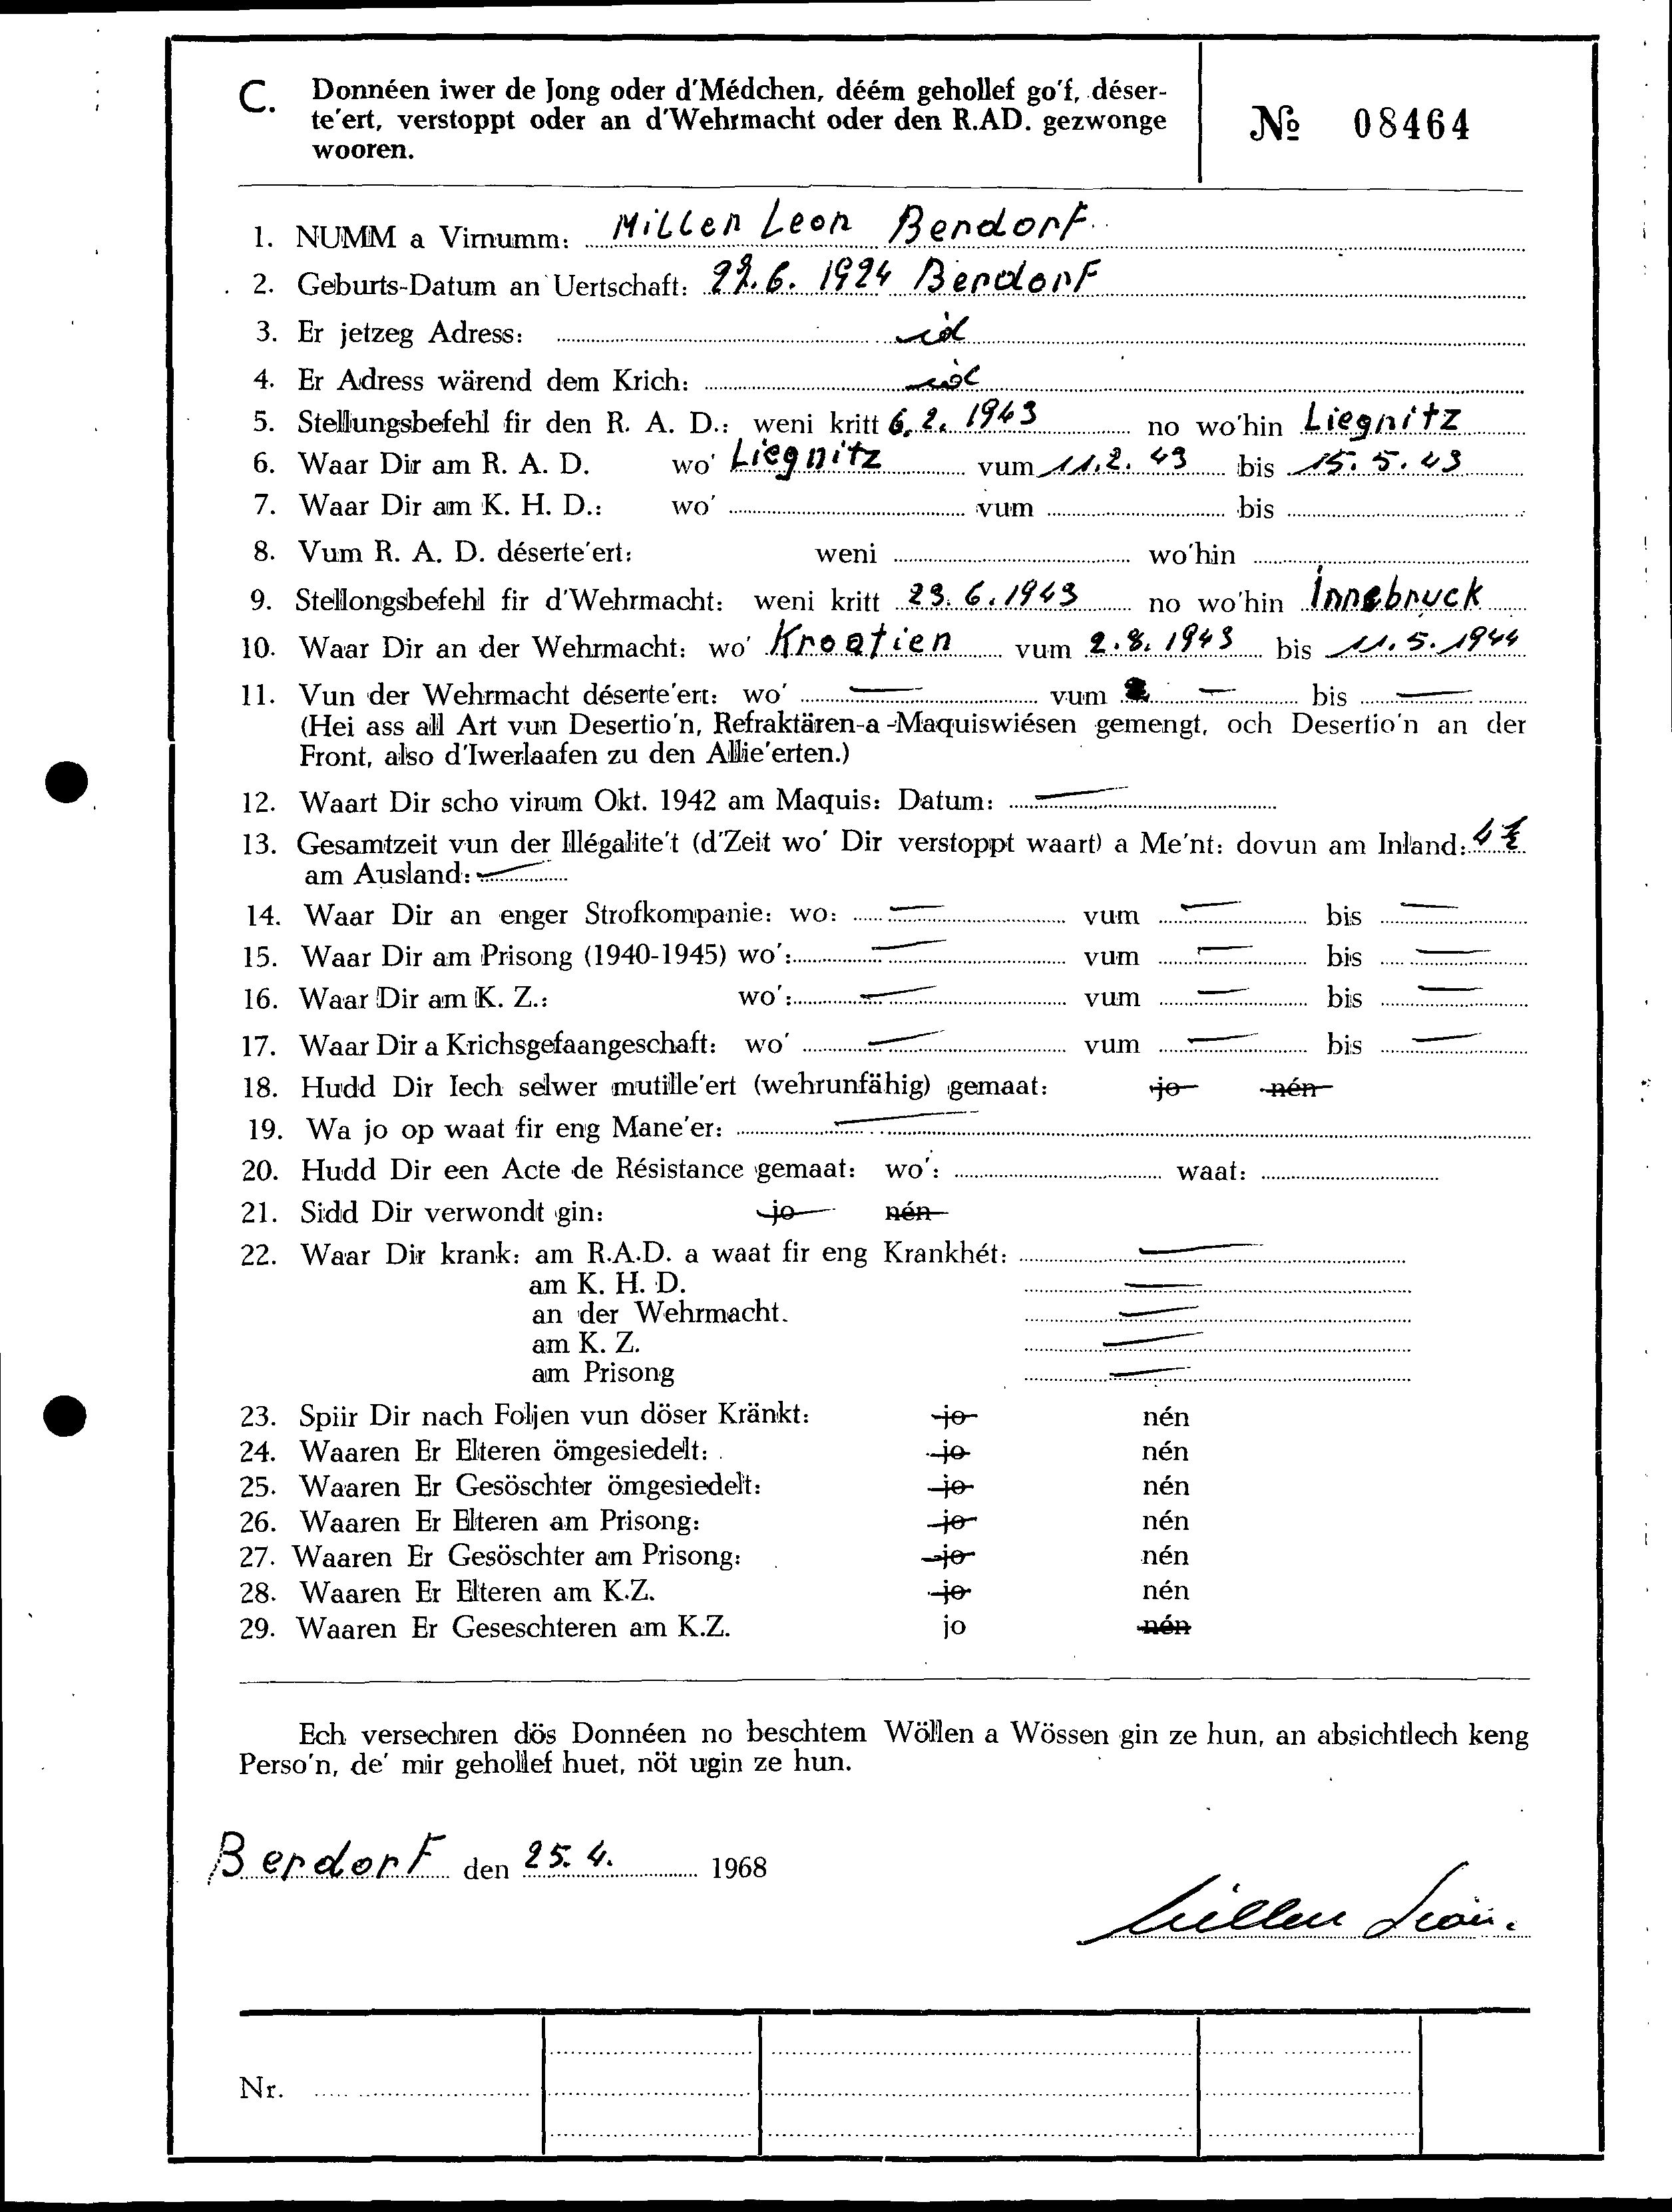 C. Donnéen iwer de Jong oder d'Médchen, déém gehollef go'f, déser-
te'ert, verstoppt oder an d'Wehrmacht oder den R.AD. gezwonge
wooren.
№ 08464
1. NUMM a Virnumm: Millen Leon Berdorf
2. Geburts-Datum an Uertschaft: .6. 1924 Berdorf
3. Er jetzeg Adress: id
4. Er Adress wärend dem Krich: id
5. Stellungsbefehl fir den R. A. D.: weni kritt 6. 2. 1943 no wo'hin Liegnitz
6. Waar Dir am R. A. D. wo' Liegnitz vum 11.2. 43 bis 15. 5. 43
7. Waar Dir am K. H. D.: wo' vum bis
8. Vum R. A. D. déserte'ert: weni wo'hin
9. Stellongsbefehl fir d'Wehrmacht: weni kritt 23. 6. 1943 no wo'hin Innsbruck
10. Waar Dir an der Wehrmacht: wo' Kroatien vum 2. 8. 1943 bis 11. 5. 1944
11. Vun der Wehrmacht déserte'ert: wo' — vum — bis —
(Hei ass all Art vun Desertio'n, Refraktären-a-Maquiswiésen gemengt, och Desertio'n an der
Front, also d'Iwerlaafen zu den Allie'erten.)
12. Waart Dir scho virum Okt. 1942 am Maquis: Datum: —
13. Gesamtzeit vun der Illégalite't (d'Zeit wo' Dir verstoppt waart) a Me'nt: dovun am Inland: 4
am Ausland: —
14. Waar Dir an enger Strofkompanie: wo: — vum — bis —
15. Waar Dir am Prisong (1940-1945) wo': — vum — bis —
16. Waar Dir am K. Z.: wo': — vum — bis —
17. Waar Dir a Krichsgefaangeschaft: wo' — vum — bis —
18. Hudd Dir Iech selwer mutille'ert (wehrunfähig) gemaat: jo nén
19. Wa jo op waat fir eng Mane'er: —
20. Hudd Dir een Acte de Résistance gemaat: wo': waat:
21. Sidd Dir verwondt gin: jo nén
22. Waar Dir krank: am R.A.D. a waat fir eng Krankhét: —
am K. H. D. —
an der Wehrmacht. —
am K. Z. —
am Prisong —
23. Spiir Dir nach Foljen vun döser Kränkt: jo nén
24. Waaren Er Elteren ömgesiedelt: jo nén
25. Waaren Er Gesöschter ömgesiedelt: jo nén
26. Waaren Er Elteren am Prisong: jo nén
27. Waaren Er Gesöschter am Prisong: jo nén
28. Waaren Er Elteren am K.Z. jo nén
29. Waaren Er Geseschteren am K.Z. jo nén
Ech versechren dös Donnéen no beschtem Wöllen a Wössen gin ze hun, an absichtlech keng
Perso'n, de' mir gehollef huet, nöt ugin ze hun.
Berdorf den 25. 4. 1968
Millen Léon.
Nr.